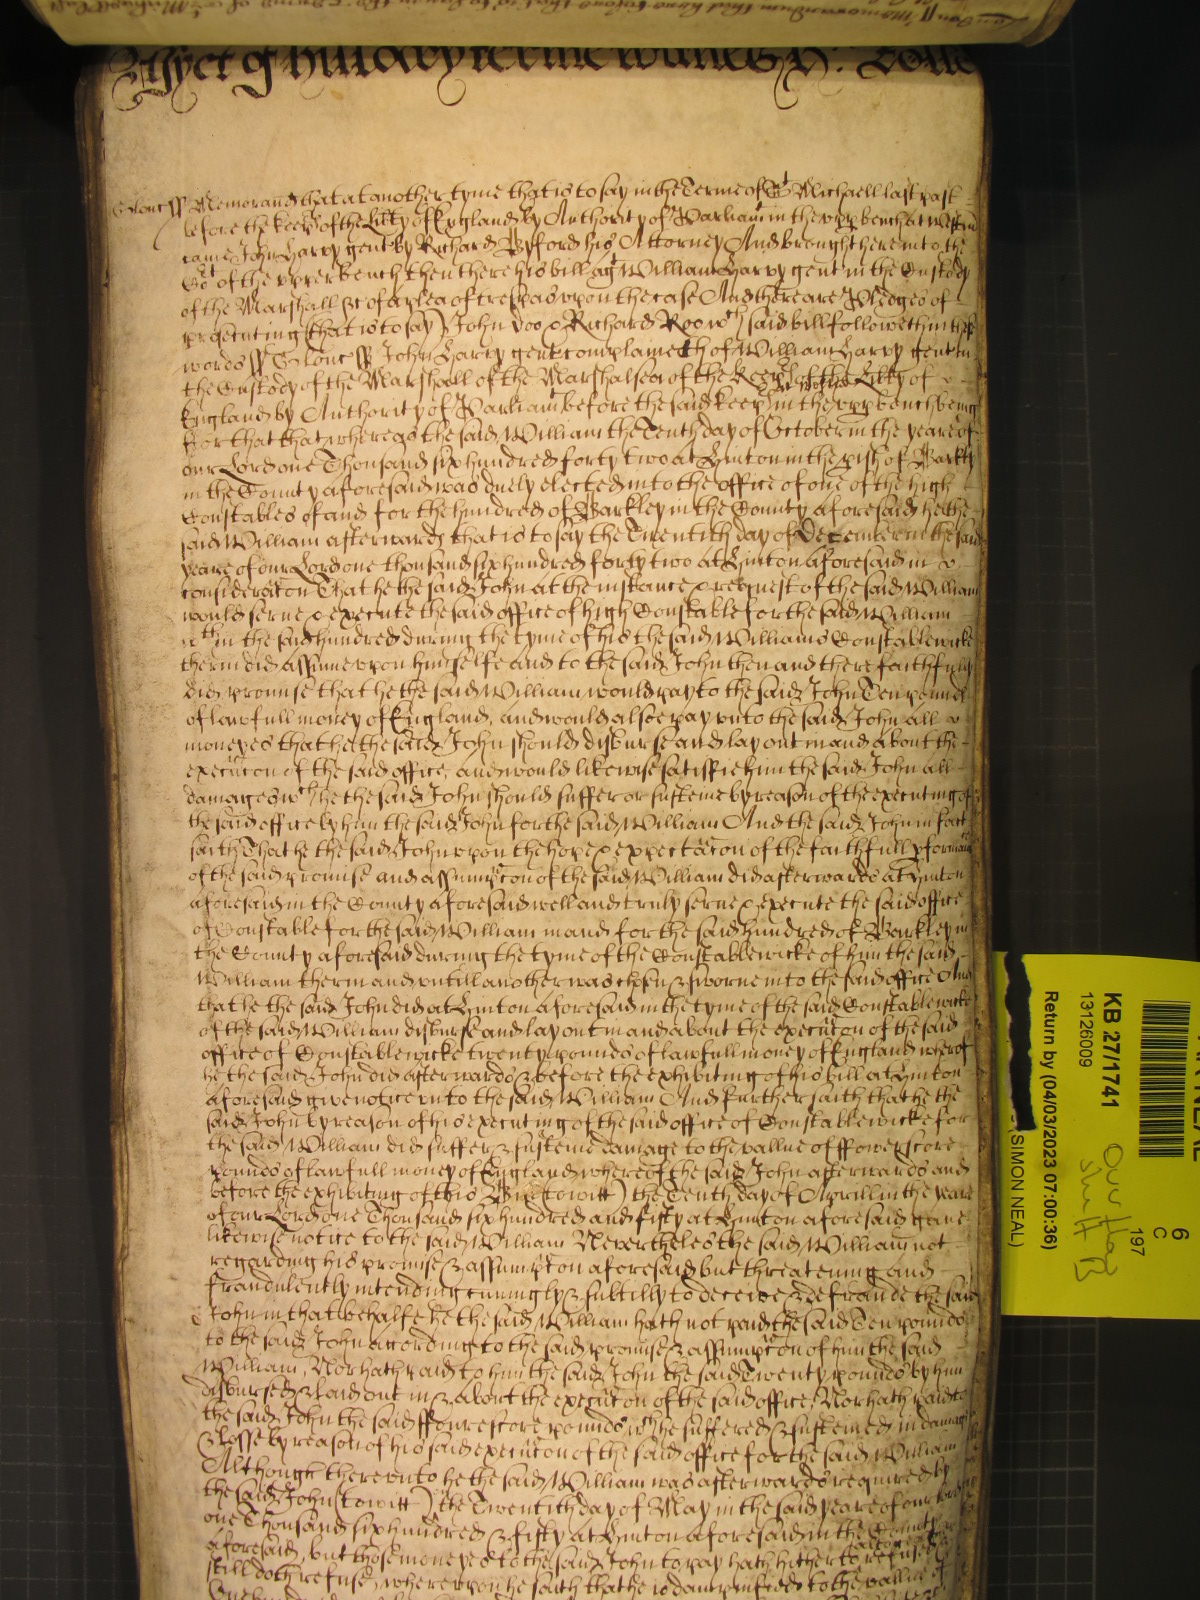 Yet of Hillary terme witnes H: Rolle
Glouc ss Memorand that at another tyme that is to say in the Terme of St Michaell last past
before the keeps of the Libty of England by Authority of Parliamt in the vpp bench at Westm
came John Harvy gent by Richard Byford his Attorney And brought here into the
Cort of the vpper bench then there his bill agt William Harvy gent in the Custody
of the Marshall &c of a plea of trespas vpon the case And there are Pledges of
prosecuting (that is to say) John Doo & Richard Roo wch said bill followeth in these
words ss Glouc ss John Harvy gent complaineth of William Harvy gent in
the Custody of the Marshall of the Marshalsea of the Keeps of the Libty of
England by Authority of Parliamt before the said keeps in the vpp bench being
For that that whereas the said William the Tenth day of October in the yeare of
our Lord one Thousand six hundred forty two at Hinton in the pish of Barkly
in the County aforesaid was duely elected into the office of one of the high
Constables of and for the hundred of Barkley in the County aforesaid he the
said William afterwards that is to say the Twentith day of December in the said
yeare of our Lord one thousand six hundred forty two at Hinton aforesaid in
consideracon That he the said John at the instance & request of the said William
would serue & execute the said office of high Constable for the said William
wthin the said hundred during the tyme of his the said Williams Constablewicke
therin did assume vpon himselfe and to the said John then and there faithfully
did promise that he the said William would pay to the said John Ten pounds
of lawfull money of England, and would alsoe pay vnto the said John all
moneyes that he the said John should disburse and lay out in and about the
execucon of the said office, and would likewise satisfie him the said John all
damages wch he the said John should suffer or susteine by reason of the executing of
the said office by him the said John for the said William And the said John in fact
saith That he the said John vpon the hope & expectacon of the faithfull pformance
of the said promise and assumpcon of the said William did afterwards at Hinton
aforesaid in the County aforesaid well and truly serue & execute the said office
of Constable for the said William in and for the said hundred of Barkley in
the County aforesaid during the tyme of the Constablewicke of him the said
William therin and vntill another was chosen & sworne into the said office And
that he the said John did at Hinton aforesaid in the tyme of the said Constablewicke
of the said William disburse and lay out in and about the execucon of the said
office of Constablewicke twenty pounds of lawfull money of England wherof
he the said John did afterwards & before the exhibiting of his bill at Hinton
aforesaid giue notice vnto the said William And further saith that he the
said John by reason of his executing of the said office of Constablewicke for
the said William did suffer & susteine damage to the vallue of ffower score
pounds of lawfull money of England whereof the said John afterwards and
before the exhibiting of this Bill (to witt) the Tenth day of Aprill in the yeare
of our Lord one Thousand six hundred and fifty at Hinton aforesaid gaue
likewise notice to the said William Neuertheles the said William not
regarding his promise & assumpcon aforesaid but threatening and
fraudulently intending cuningly & subtilly to deceive & defraude the said
John in that behalfe he the said William hath not paid the said Ten pounds
to the said John according to the said promise & assumpcon of him the said
William, Nor hath paid to him the said John the said Twenty pounds by him
disbursed & laid out in & about the execucon of the said office, Nor hath paid to
the said John the said ffourescore pounds wch he suffered & susteined in damage
& losse by reason of his said execucon of the said office for the said William
Although therevnto he the said William was afterwards required by
the said John (to witt) the Twentith day of May in the said yeare of our Lord
one Thousand six hundred & fifty at Hinton aforesaid in the County
aforesaid, but those moneyes to the said John to pay hath hitherto refused
still doth refuse, whereupon he saith that he is damnified to the vallue of
One hundred
KB 27/1741
13126009
Return by (04/03/2023 07:00:36)
SIMON NEAL)
6
C
197